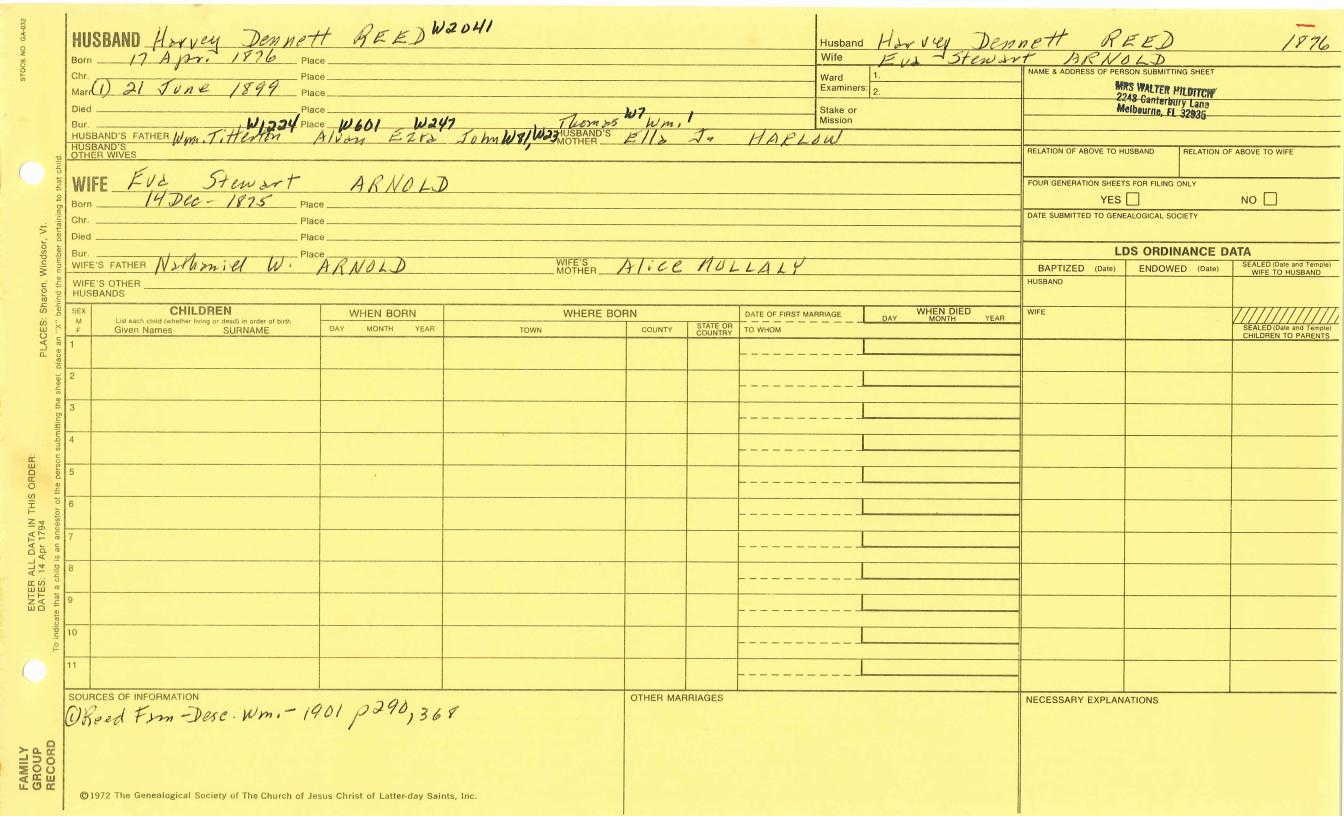 STOCK NO. GA-032
HUSBAND Harvey Dennett REED W2041
Born 17 Apr. 1876 Place
Chr. Place
Marr. (1) 21 June 1899 Place
Died Place
Bur. Place
W1224 W601 W247 Thomas W7 Wm. 1
HUSBAND'S FATHER Wm. Titterton Alvan Ezra John W81, W23 HUSBAND'S MOTHER Ella J. HARLOW
HUSBAND'S OTHER WIVES
WIFE Eva Stewart ARNOLD
Born 14 Dec - 1875 Place
Chr. Place
Died Place
Bur. Place
WIFE'S FATHER Nathaniel W. ARNOLD WIFE'S MOTHER Alice MULLALY
WIFE'S OTHER HUSBANDS
Husband Harvey Dennett REED 1876
Wife Eva Stewart ARNOLD
Ward Examiners: 1.
2.
Stake or Mission
NAME & ADDRESS OF PERSON SUBMITTING SHEET
MRS WALTER HILDITCH
2248 Canterbury Lane
Melbourne, FL 32935
RELATION OF ABOVE TO HUSBAND RELATION OF ABOVE TO WIFE
FOUR GENERATION SHEETS FOR FILING ONLY
YES NO
DATE SUBMITTED TO GENEALOGICAL SOCIETY
LDS ORDINANCE DATA
BAPTIZED (Date) ENDOWED (Date) SEALED (Date and Temple) WIFE TO HUSBAND
HUSBAND
WIFE
SEALED (Date and Temple) CHILDREN TO PARENTS
SEX M F
CHILDREN
List each child (whether living or dead) in order of birth
Given Names SURNAME
WHEN BORN
DAY MONTH YEAR
WHERE BORN
TOWN COUNTY STATE OR COUNTRY
DATE OF FIRST MARRIAGE
TO WHOM
WHEN DIED
DAY MONTH YEAR
1
2
3
4
5
6
7
8
9
10
11
SOURCES OF INFORMATION
(1) Reed Fam - Desc. Wm. - 1901 p290, 368
OTHER MARRIAGES
NECESSARY EXPLANATIONS
©1972 The Genealogical Society of The Church of Jesus Christ of Latter-day Saints, Inc.
FAMILY GROUP RECORD
ENTER ALL DATA IN THIS ORDER:
DATES: 14 Apr 1794 PLACES: Sharon, Windsor, Vt.
To indicate that a child is an ancestor of the person submitting the sheet, place an "X" behind the number pertaining to that child.